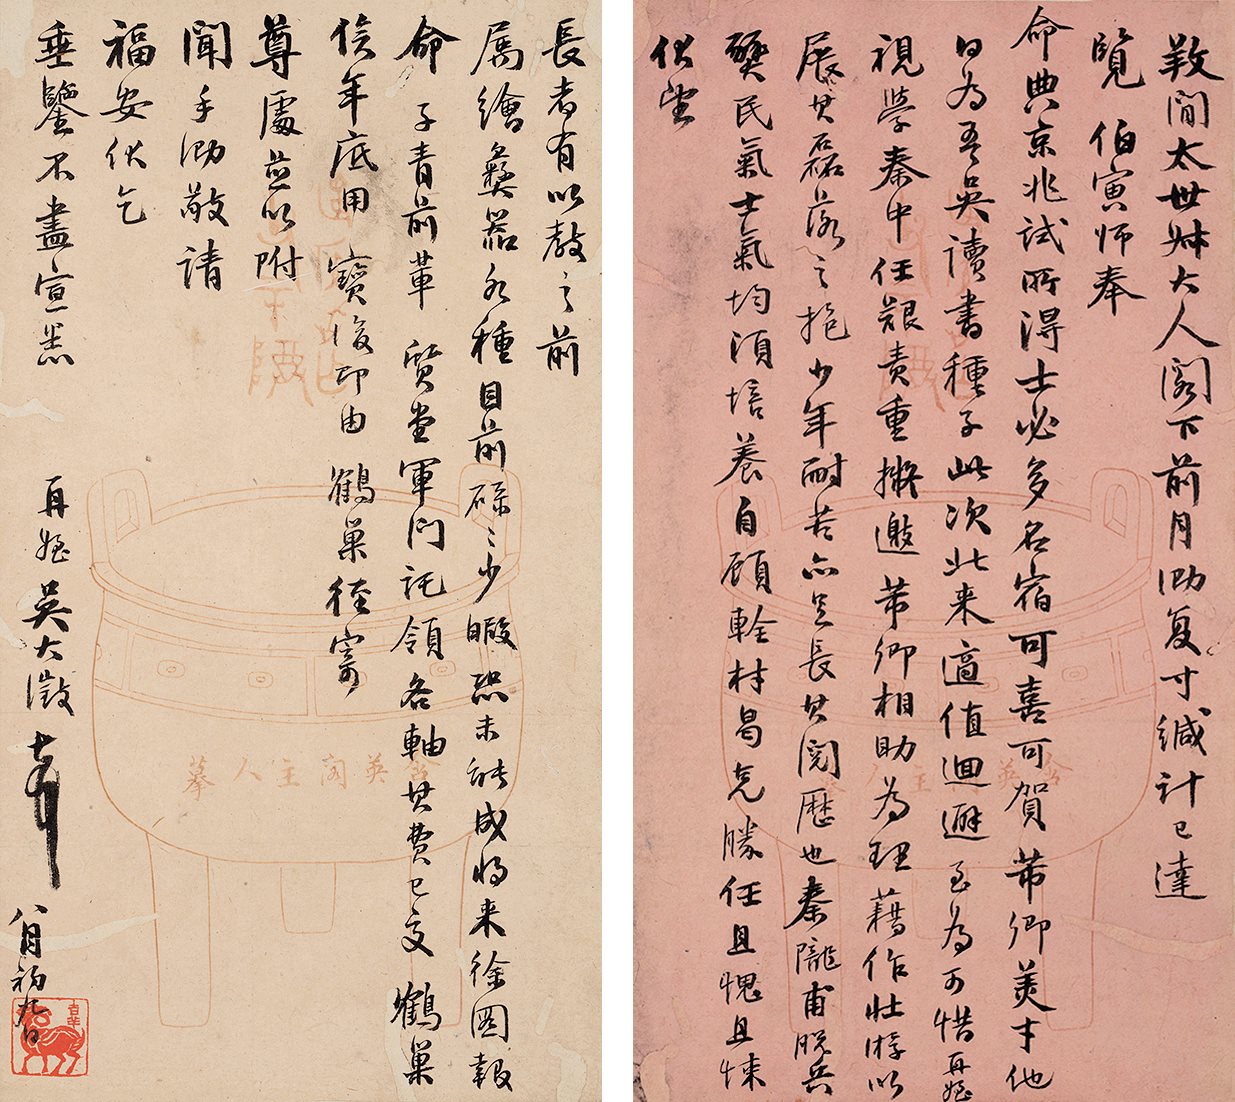 敤閒太世叔大人閣下前月泐复寸緘計已達
覽伯寅師奉
命典京兆試所得士必多名宿可喜可賀芾卿美才他
日為吾吳讀書種子此次北來適值迴避至為可惜再姪
視學秦中任艱責重擬邀芾卿相助為理藉作壯游以
展其磊落之抱少年耐苦亦足長其閱歷也秦隴甫脫兵
燹民氣士氣均須培養自顧輇材曷克勝任且愧且悚
伏望
長者有以教之前
属繪彝器各種目前碌〻少暇恐未能成將來徐圖報
命子青前輩質堂軍門託領各軸其費已交鶴巢
俟年底用寶後即由鶴巢徑寄
尊處並以附
聞手泐敬請
福安伏乞
垂鑒不盡宣悉
再姪吳大澂
八月初九日
愙英閣主人摹